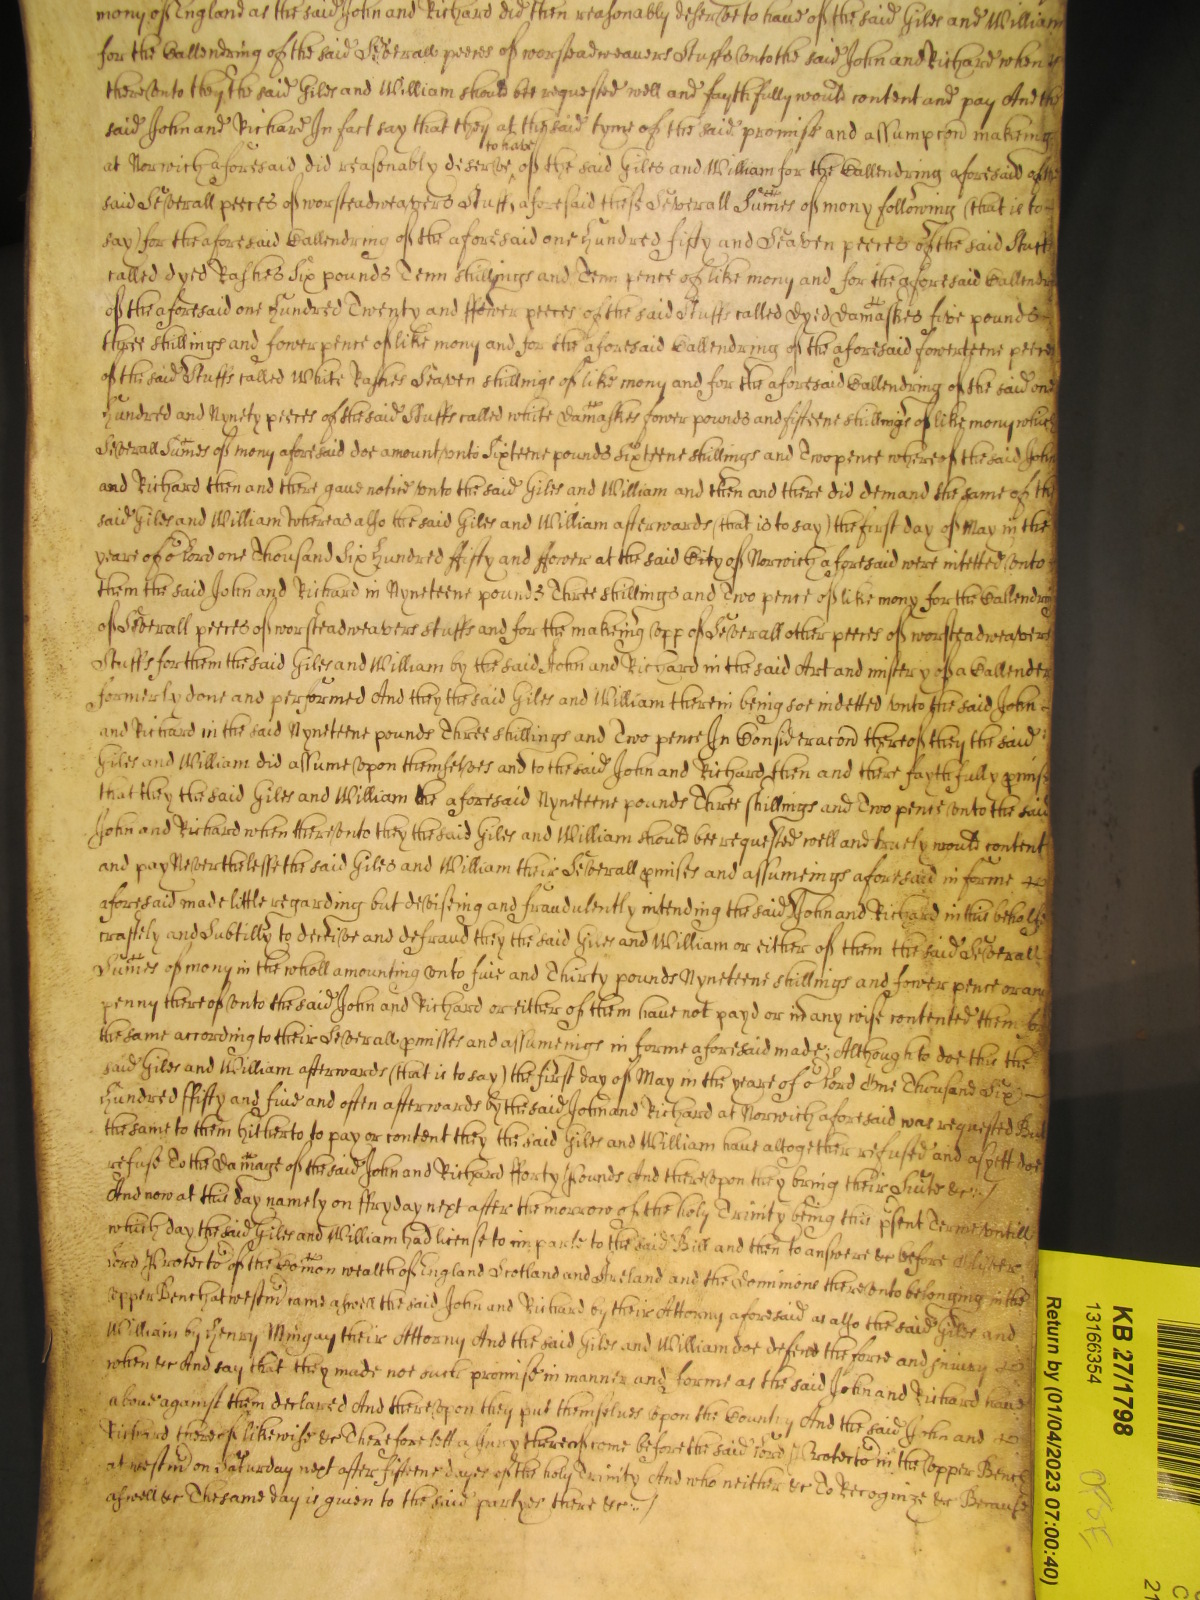 mony of England as the said John and Richard did then reasonably deserve to have of the said Giles and William
for the Callendring of the said Severall peeces of worsteadweavers Stuffs unto the said John and Richard when
therevnto they the said Giles and William should bee requested well and faythfully would content and pay And the
said John and Richard In fact say that they at the said tyme of the said promise and assumpcon makeing
to have
at Norwich aforesaid did reasonably deserve of the said Giles and William for the Callendring aforesaid of the
said Severall peeces of worsteadweavers Stuffs aforesaid these Severall Sumes of mony following (that is to
say) for the aforesaid Callendring of the aforesaid one hundred fifty and Seaven peeces of the said Stuffs
called dyed Rashes Six pounds Tenn shillings and Tenn pence of like mony and for the aforesaid Callendring
of the aforesaid one hundred Twenty and ffower peeces of the said Stuffs called dyed damaskes five pounds
three shillings and fower pence of like mony and for the aforesaid Callendring of the aforesaid fowerteene peeces
of the said Stuffs called White Rashes Seaven shillings of like mony and for the aforesaid Callendring of the said one
hundred and Nynety peeces of the said Stuffs called white damaskes fower pounds and fifteene shillings of like mony which
Severall Sumes of mony aforesaid doe amount vnto Sixteene pounds Sixteene shillings and Twopence whereof the said John
and Richard then and there gaue notice vnto the said Giles and William and then and there did demand the same of the
said Giles and William Whereas also the said Giles and William afterwards (that is to say) the first day of May in the
yeare of or Lord one Thousand Six hundred ffifty and ffower at the said City of Norwich aforesaid were indetted vnto
them the said John and Richard in Nyneteene pounds Three shillings and Two pence of like mony for the Callendring
of Severall peeces of worsteadweavers stuffs and for the makeing vpp of Severall other peeces of worsteadweavers
Stuffs for them the said Giles and William by the said John and Richard in the said Art and mistery of a Callender
formerly done and performed And they the said Giles and William therein being soe indetted vnto the said John
and Richard in the said Nyneteene pounds Three shillings and Two pence In Consideracon thereof they the said
Giles and William did assume vpon themselves and to the said John and Richard then and there faythfully pmise
that they the said Giles and William the aforesaid Nyneteene pounds Three shillings and Two pence vnto the said
John and Richard when therevnto they the said Giles and William should bee requested well and truely would content
and pay Neverthelesse the said Giles and William their Severall pmises and assumeings aforesaid in forme
aforesaid made little regarding but deviseing and fraudulently intending the said John and Richard in this behalfe
craftely and Subtilly to deceive and defraud they the said Giles and William or either of them the said Severall
Sumes of mony in the wholl amounting vnto fiue and Thirty pounds Nyneteene shillings and fower pence or any
penny thereof vnto the said John and Richard or either of them have not payd or in any wise contented them for
the same according to their Severall pmisses and assumeings in forme aforesaid made; Although to doe this the
said Giles and William afterwards (that is to say) the first day of May in the yeare of or Lord One Thousand Six
hundred ffifty and fiue and often afterwards by the said John and Richard at Norwich aforesaid was requested But
the same to them hitherto to pay or content they the said Giles and William have altogether refused and as yett doe
refuse To the damage of the said John and Richard fforty pounds And therevpon they bring their Suite &c
And now at this day namely on ffryday next after the morrow of the holy Trinity being this psent Terme vntill
which day the said Giles and William had license to imparle to the said Bill and then to answere &c before Oliver
Lord Protector of the Comon wealth of England Scotland and Ireland and the Dominions therevnto belonging in the
vpper Bench at westmr came aswell the said John and Richard by their Attorny aforesaid as also the said Giles and
William by Henry Mingay their Attorny And the said Giles and William doe defend the force and Iniury
when &c And say that they made noe such promise in manner and forme as the said John and Richard have
above against them declared And therevpon they put themselues vpon the Country And the said John and
Richard thereof likewise &c Therefore lett a Iury thereof come before the said Lord Protector in the vpper Bench
at westmr on Saturday next after fifteene dayes of the holy Trinity And who neither &c To Recognize &c Because
aswell &c The same day is given to the said partyes there &c
KB 27/1798
13166354
Return by (01/04/2023 07:00:40)